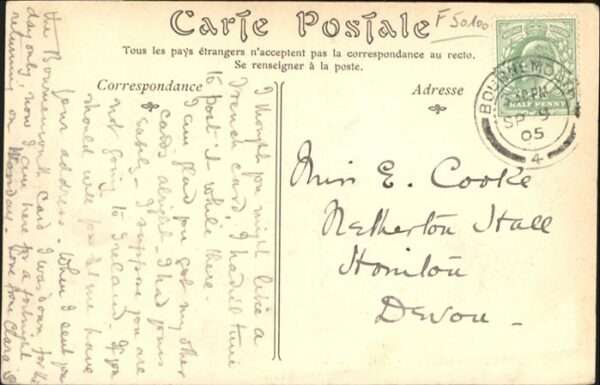 Carte Postale
F 50100
Tous les pays étrangers n'acceptent pas la correspondance au recto.
Se renseigner à la poste.
Correspondance
Adresse
HALF PENNY
BOURNEMOUTH
PM
SP 9
05
4
I thought you might like a
French card, I hadn't time
to post it while there.
I am glad you got my other
cards alright. I had yours
safely. I suppose you are
not going to Ireland. If you
should will you let me have
your address. When I sent you
the Bournemouth Card I was down for the
day only, now I am here for a fortnight
returning on Love from Clara
Miss E. Cooke
Netherton Hall
Honiton
Devon